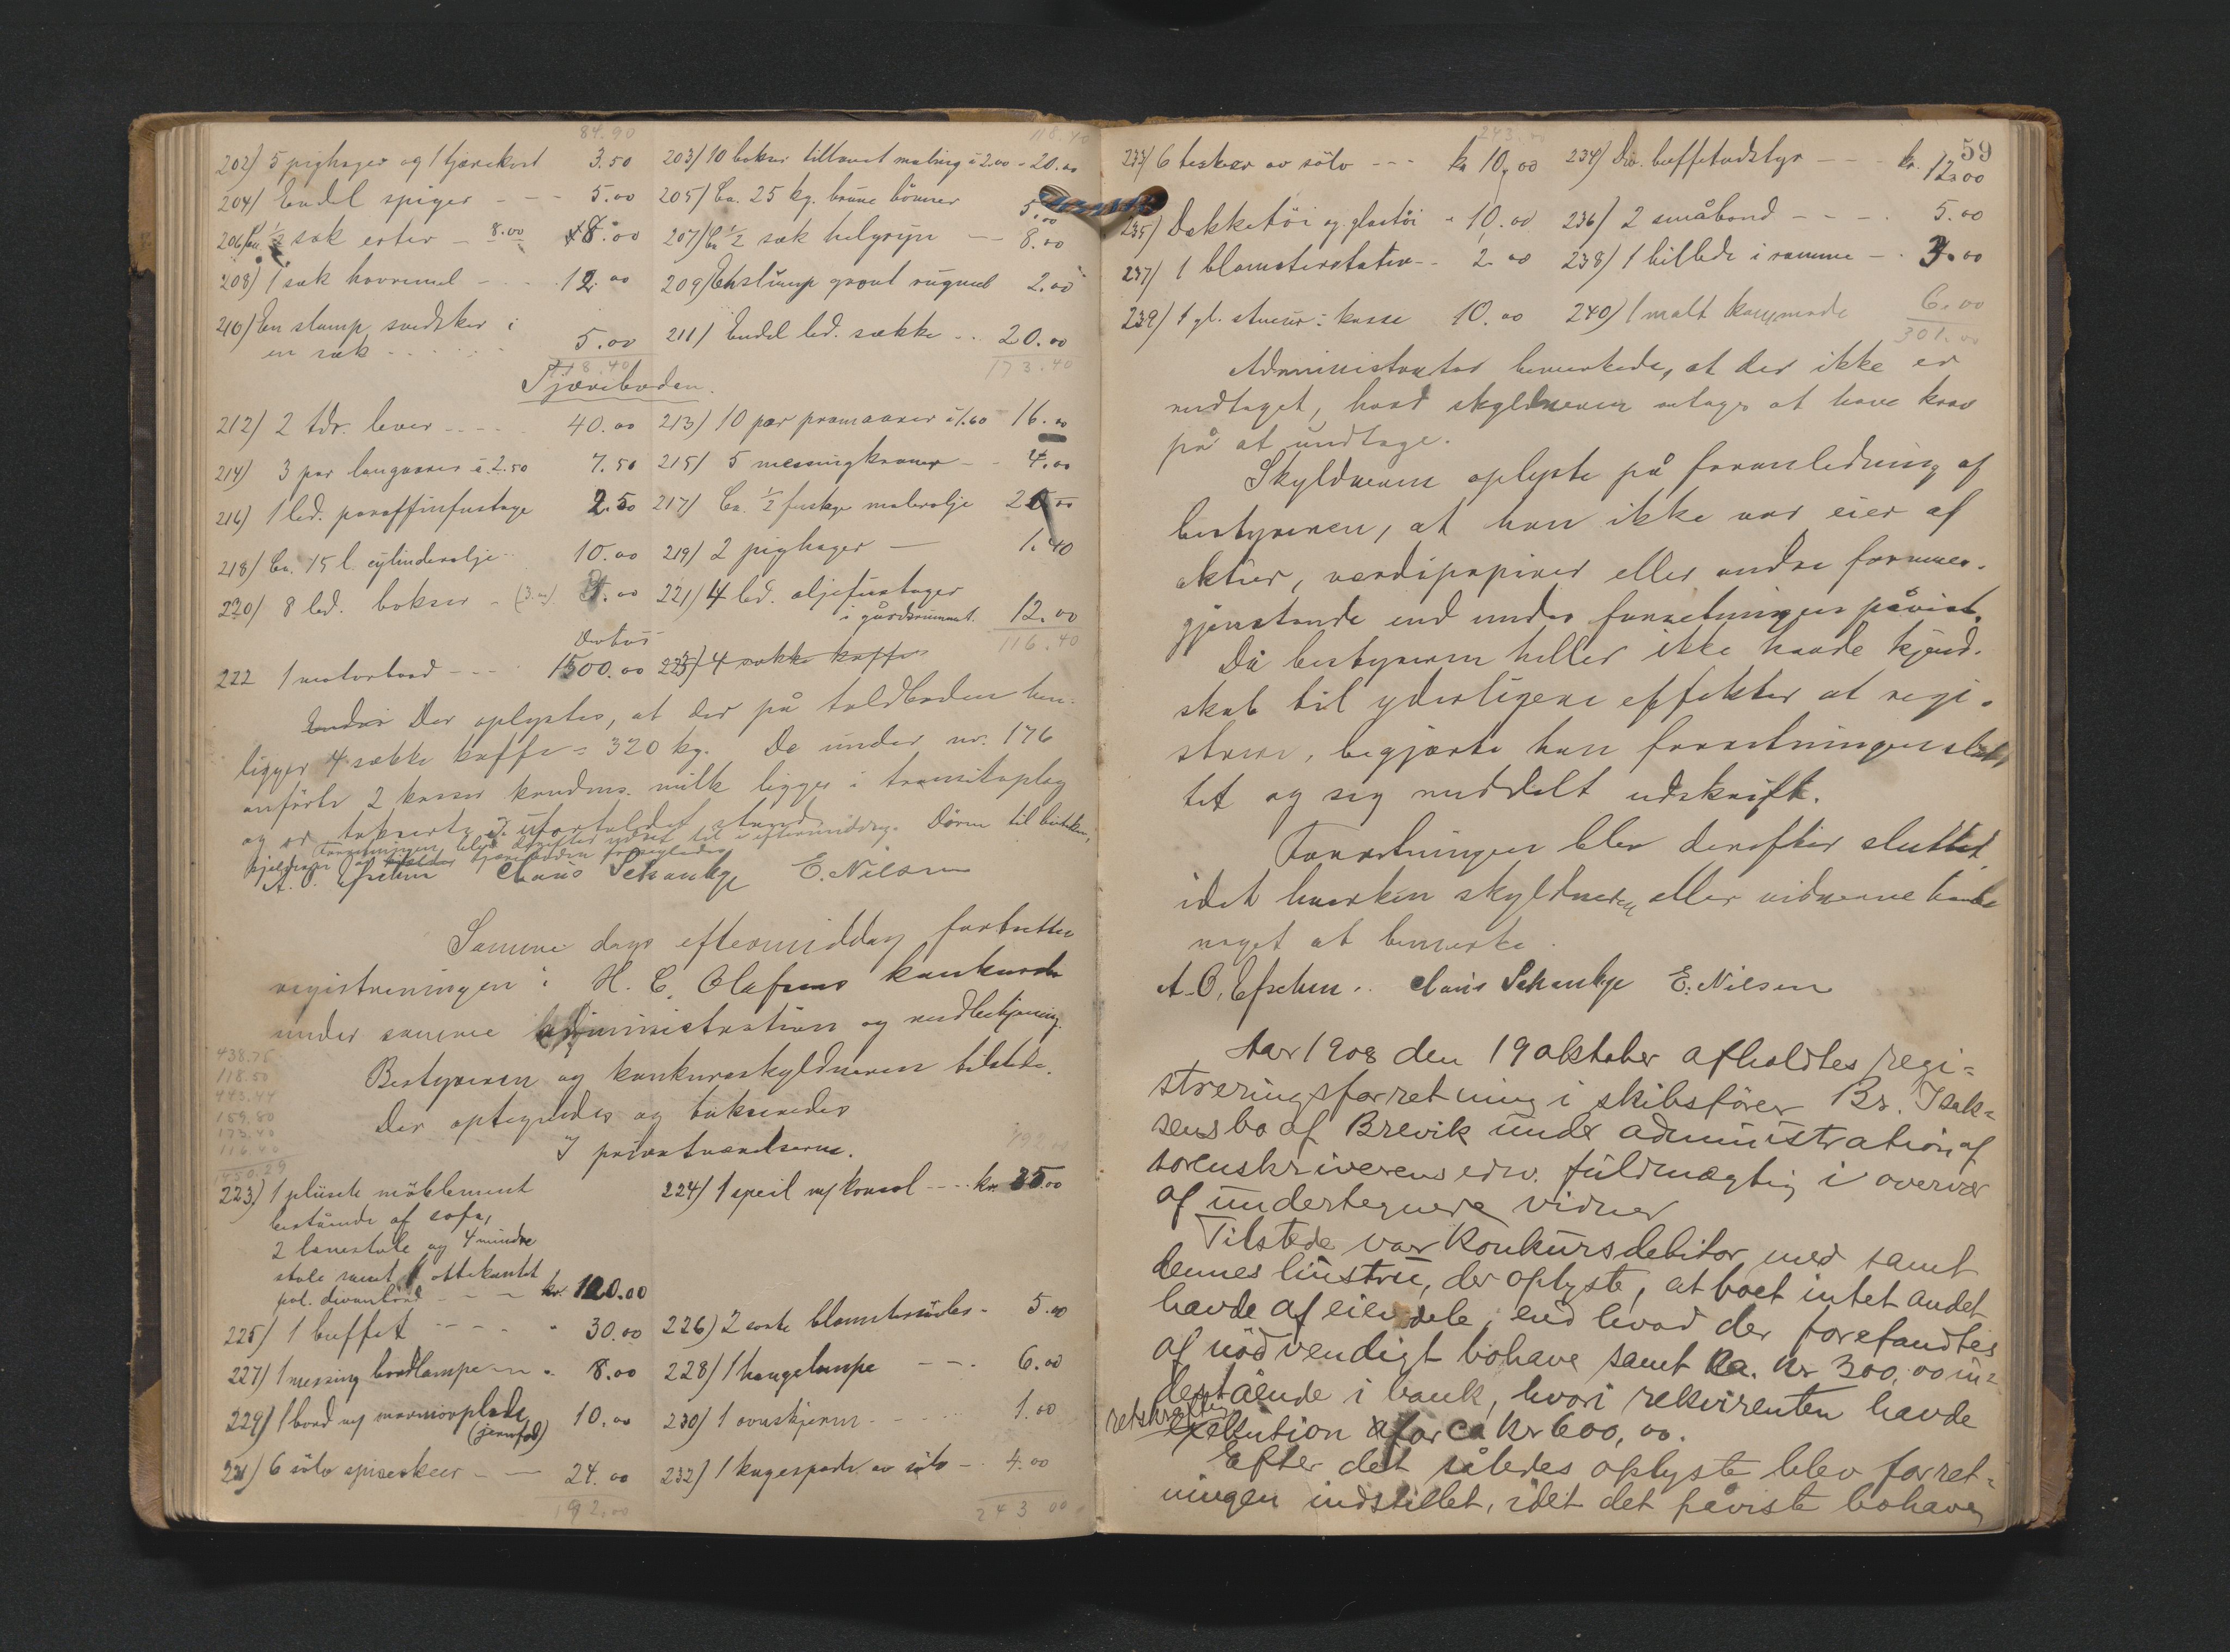 84.90
118.40
202) 5 pighager og 1 tjærekost 3.50
203) 10 bokser tillavet maling à 2.00 - 20.00
204) Endel spiger - - - 5.00
205) Ca. 25 kg. brune bönner 5.00
206) Ca. 1/2 sæk erter - 8.00 8.00
207) Ca 1/2 sæk helgryn - 8.00
208) 1 sæk havremel - - - 12.00
209) En slump grovt rugmel 2.00
210) En slump svedsker i
en sæk - - - - - 5.00
211) Endel led. sække - - 20.00
118.40
173.40
Tjæreboden.
212) 2 tdr. lever - - - - 40.00
213) 10 par pramaarer à 1.60 16.00
214) 3 par langaarer à 2.50 7.50
215) 5 messingkraner - - 4.00
216) 1 led. paraffinfustage 2.50
217) Ca. 1/2 fustage malerolje 20.00
218) Ca. 15 l. cylinderolje - 10.00
219) 2 pighager - 1.40
220) 8 led. bokser - (3.00) 3.00
221) 4 led. oljefustager
i gårdsrummet. 12.00
116.40
Desuten
222 1 motorbaad - - - 1500.00
223) 4 sække kaffe
Endvi Der oplystes, at der på toldboden hen-
ligger 4 sække kaffe = 320 kg. De under nr. 176
anförte 2 kasser kondens. milk ligger i transitoplag
og er takserte i ufortoldet stand.
Forretningen blev derefter udsat til i eftermiddag. Dören til butiken,
kjelderen og tjæreboden forsegledes
A. O. Efschen Claus Schanche E. Nilsen
Samme dags eftermiddag fortsattes
registreringen i H. C. Olafsens konkursbo
under samme administration og medbetjening.
Bestyreren og konkursskyldneren tilstede.
Der optegnedes og takseredes
I privatværelserne.
438.75
118.50
443.44
159.80
173.40
116.40
1450.29
192.00
223) 1 plüsch möblement
bestående af sofa,
2 lænestole og 4 mindre
stole samt 1 ottekantet
pol. divanbord - - - kr. 120.00
224) 1 speil m/ konsol - - - kr. 35.00
225) 1 buffet - - - - " 30.00
226) 2 sorte blomstersöiler - 5.00
227) 1 messing bordlampe - " 8.00
228) 1 hængelampe - - - 6.00
229) 1 bord m/ marmorplade
(jernfod) 10.00
230) 1 ovnskjerm - - - 1.00
231) 6 sölv spiseskeer - - 24.00
232) 1 kagespade av sölv - - 4.00
192.00
243.00
243.00
59
233) 6 teskeer av sölv - - - kr 10,00
234) Div. buffetudstyr - - - kr. 12.00
235) Dækketöi og glastöi - 10.00
236) 2 småbord - - - 5.00
237) 1 blomsterstativ - - 2.00
238) 1 billede i ramme - - 3.00
239) 1 gl. stueur i kasse 10.00
240) 1 malt kommode 6.00
301.00
Administrator bemerkede, at der ikke er
medtaget, hvad skyldneren antages at have krav
på at undtage.
Skyldneren oplyste på foranledning af
bestyreren, at han ikke var eier af
aktier, værdipapirer eller andre formues-
gjenstande end under forretningen påvist.
Da bestyreren heller ikke havde kjend-
skab til yderligere effekter at regi-
strere, begjærte han forretningen slut-
tet og sig meddelt udskrift.
Forretningen blev derefter sluttet,
idet hverken skyldneren eller vidnerne havde
noget at bemerke.
A. O. Efschen.. Claus Schanche E. Nilsen
Aar 1908 den 19 oktober afholdtes regi=
streringsforretning i skibsförer Br. Isak=
sens bo af Brevik under administration af
sorenskriverens edsv. fuldmægtig i overvær
af undertegnede vidner
Tilstede var konkursdebitor med samt
dennes hustru, der oplyste, at boet intet andet
havde af eiendele, end hvad der forefandtes
af nödvendigt bohave samt ca. kr 300,00 in=
destående i bank, hvori rekvirenten havde
retskraftig exekution for ca kr 600,00.
Efter det således oplyste blev forret=
ningen indstillet, idet det påviste bohave